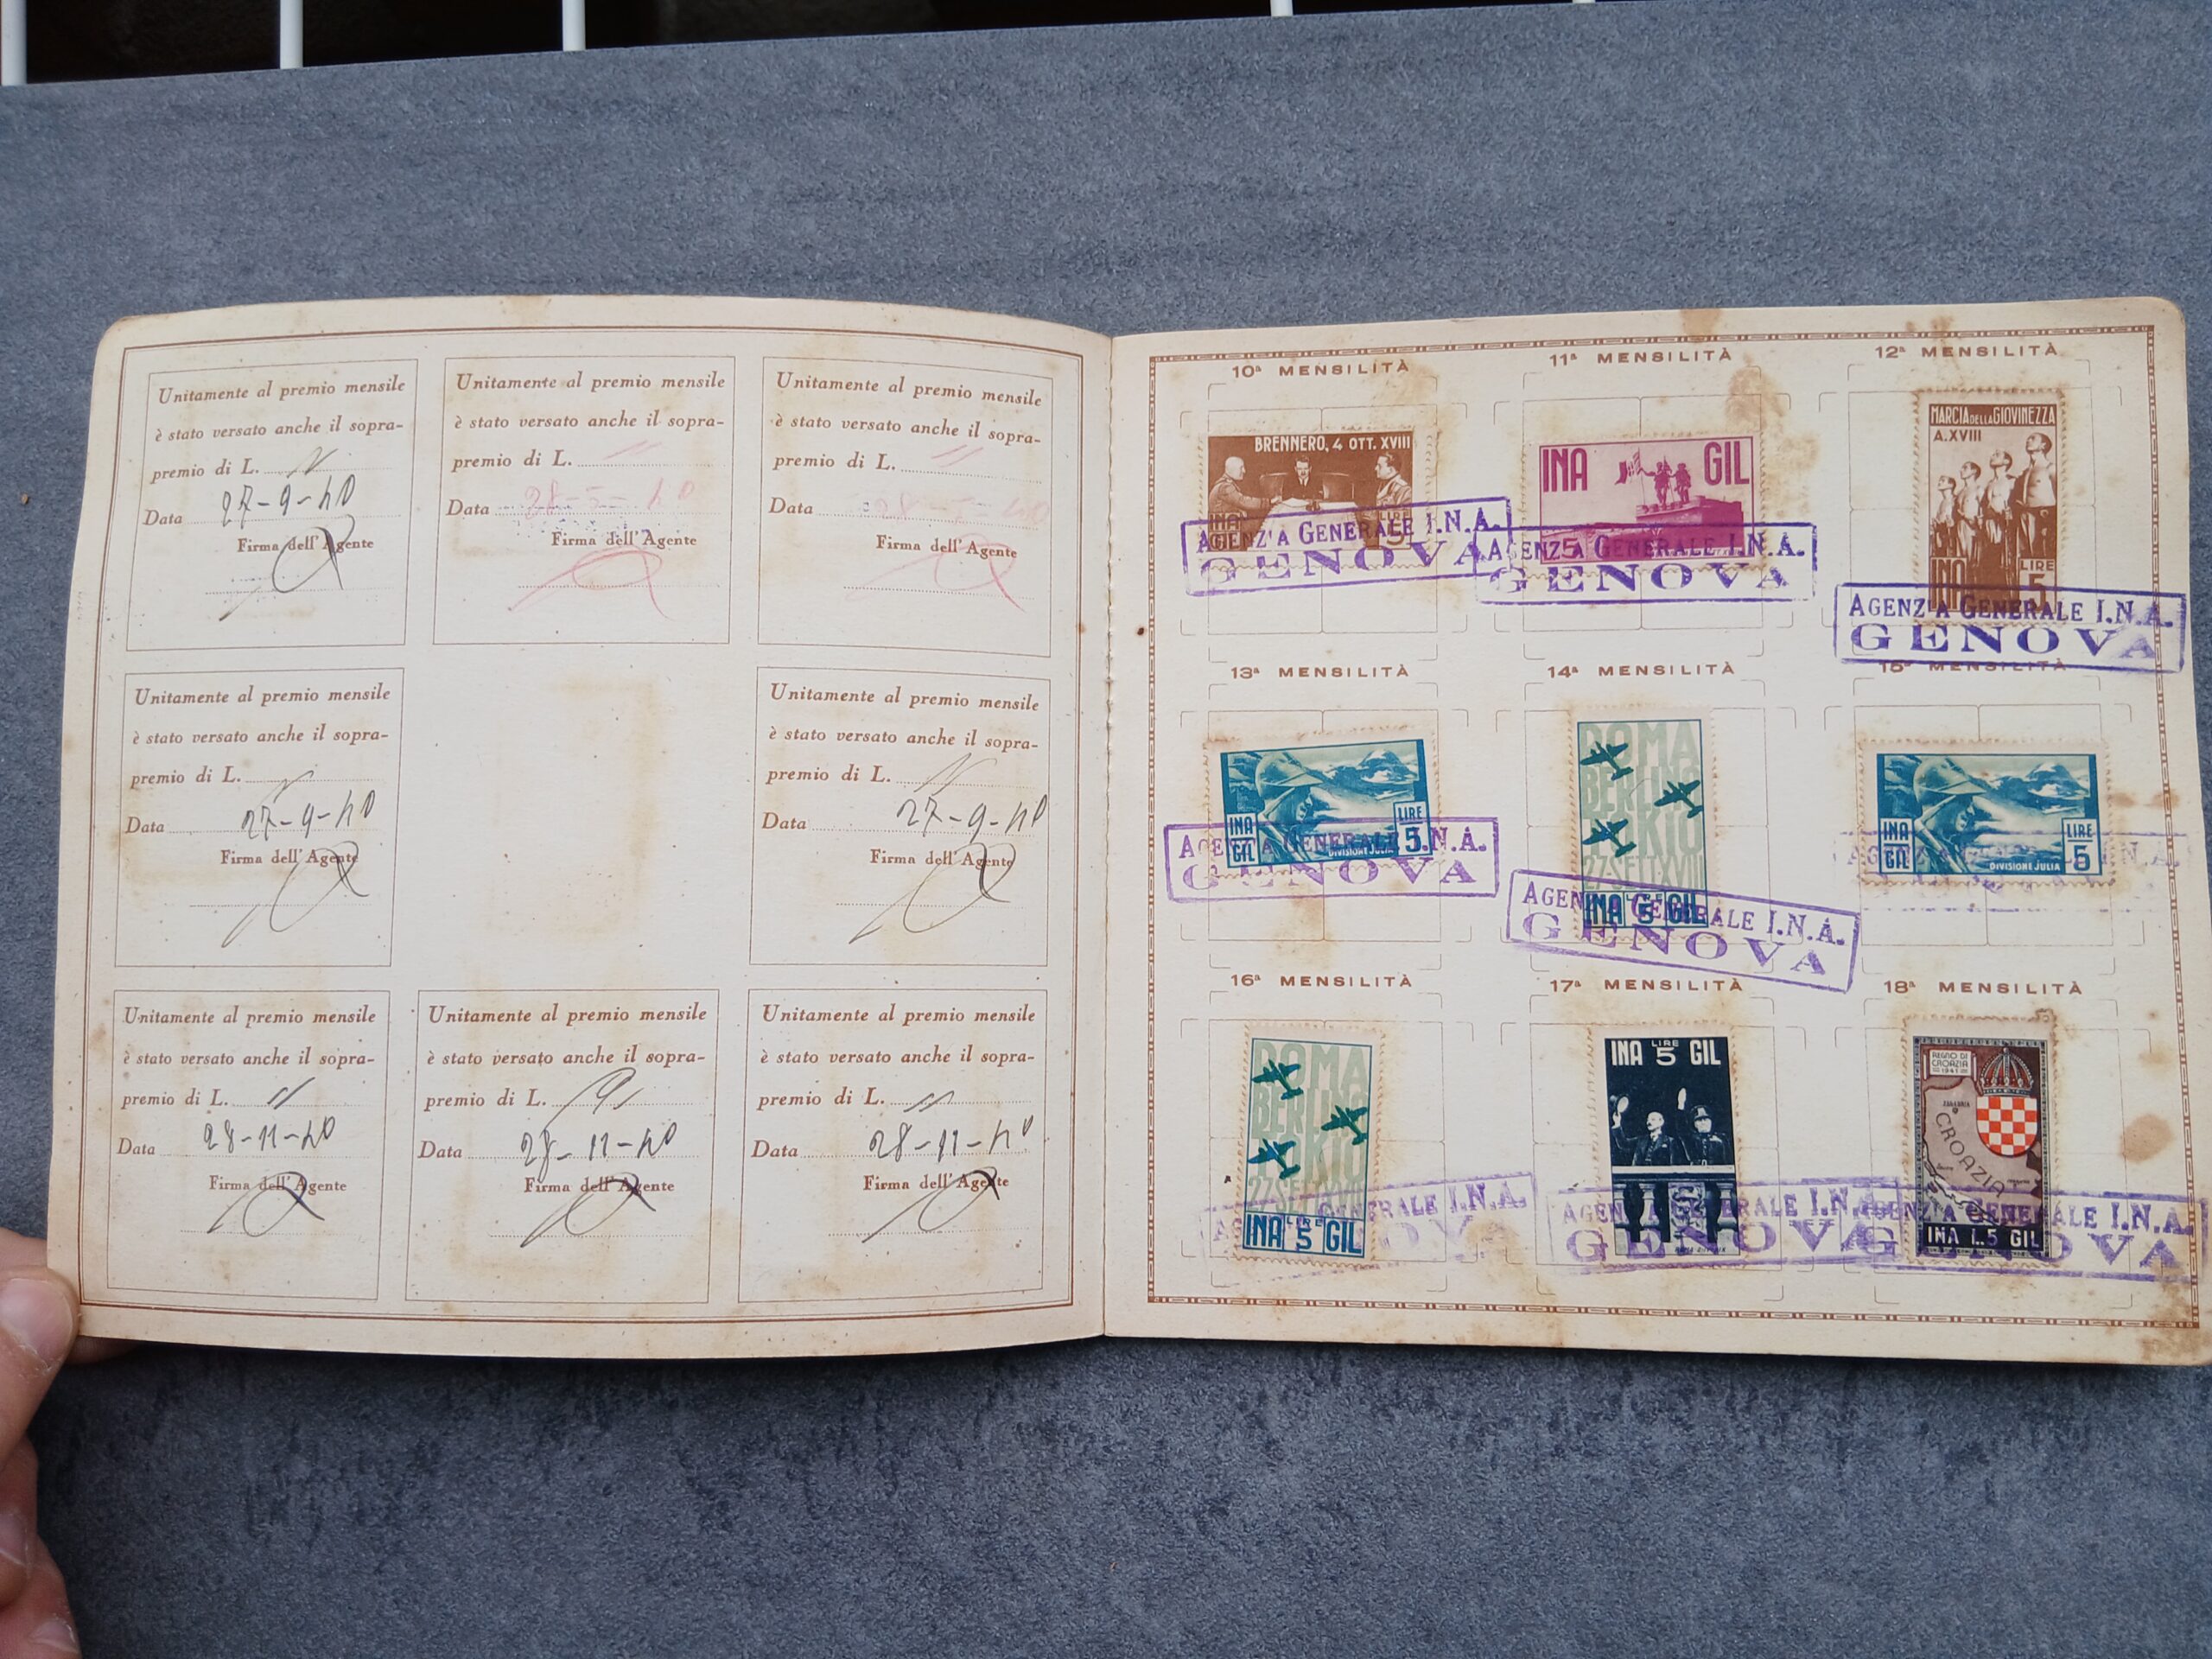 Unitamente al premio mensile
è stato versato anche il sopra-
premio di L.
Data 27-9-40
Firma dell'Agente
Unitamente al premio mensile
è stato versato anche il sopra-
premio di L.
Data 28-5-40
Firma dell'Agente
Unitamente al premio mensile
è stato versato anche il sopra-
premio di L.
Data 28- -40
Firma dell'Agente
Unitamente al premio mensile
è stato versato anche il sopra-
premio di L.
Data 27-9-40
Firma dell'Agente
Unitamente al premio mensile
è stato versato anche il sopra-
premio di L.
Data 27-9-40
Firma dell'Agente
Unitamente al premio mensile
è stato versato anche il sopra-
premio di L.
Data 28-11-40
Firma dell'Agente
Unitamente al premio mensile
è stato versato anche il sopra-
premio di L.
Data 28-11-40
Firma dell'Agente
Unitamente al premio mensile
è stato versato anche il sopra-
premio di L.
Data 28-11-40
Firma dell'Agente
10ª MENSILITÀ
BRENNERO, 4 OTT. XVIII
INA
GIL
LIRE
5
AGENZIA GENERALE I.N.A.
GENOVA
11ª MENSILITÀ
INA GIL
5
AGENZIA GENERALE I.N.A.
GENOVA
12ª MENSILITÀ
MARCIA DELLA GIOVINEZZA
A.XVIII
LIRE
INA 5
AGENZIA GENERALE I.N.A.
GENOVA
13ª MENSILITÀ
INA
GIL
LIRE
5
DIVISIONE JULIA
AGENZIA GENERALE I.N.A.
GENOVA
14ª MENSILITÀ
ROMA
BERLINO
TOKIO
27·SETT·XVIII
LIRE
INA 5 GIL
AGENZIA GENERALE I.N.A.
GENOVA
15ª MENSILITÀ
INA
GIL
LIRE
5
DIVISIONE JULIA
16ª MENSILITÀ
ROMA
BERLINO
TOKIO
27·SETT·XVIII
LIRE
INA 5 GIL
AGENZIA GENERALE I.N.A.
GENOVA
17ª MENSILITÀ
LIRE
INA 5 GIL
AGENZIA GENERALE I.N.A.
GENOVA
18ª MENSILITÀ
REGNO DI
CROAZIA
1941
ZAGABRIA
CROAZIA
INA L.5 GIL
AGENZIA GENERALE I.N.A.
GENOVA